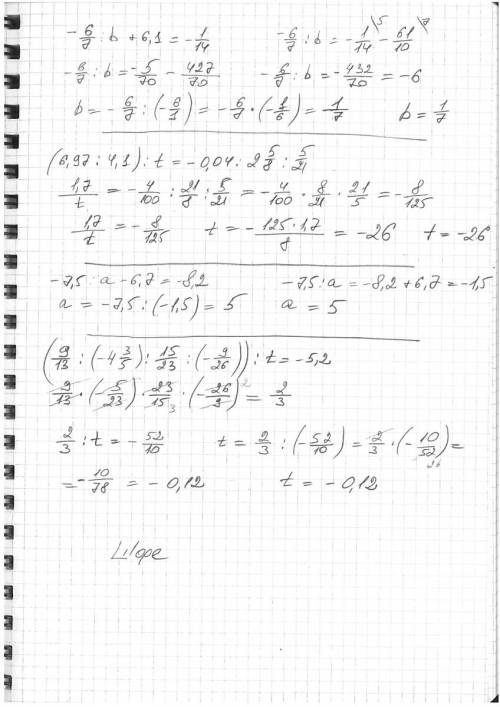 -6/7 : b + 6,1 = -1/14    -6/7 : b = -1/14 \5 - 61/10 \7
-6/7 : b = -5/70 - 427/70    -6/7 : b = -432/70 = -6
b = -6/7 : (-6/1) = -6/7 · (-1/6) = 1/7    b = 1/7
(6,97 : 4,1) : t = -0,04 : 2 5/8 : 5/21
1,7/t = -4/100 : 21/8 : 5/21 = -4/100 · 8/21 · 21/5 = -8/125
1,7/t = -8/125    t = -125·1,7/8 = -26    t = -26
-7,5 : a - 6,7 = -8,2    -7,5 : a = -8,2 + 6,7 = -1,5
a = -7,5 : (-1,5) = 5    a = 5
(9/13 : (-4 3/5) : 15/23 : (-9/26)) : t = -5,2
9/13 · (-5/23) · 23/15 3 · (-26/9) 2 = 2/3
2/3 : t = -52/10    t = 2/3 : (-52/10) = 2/3 · (-10/52) 26 =
= -10/78 = -0,12    t = -0,12